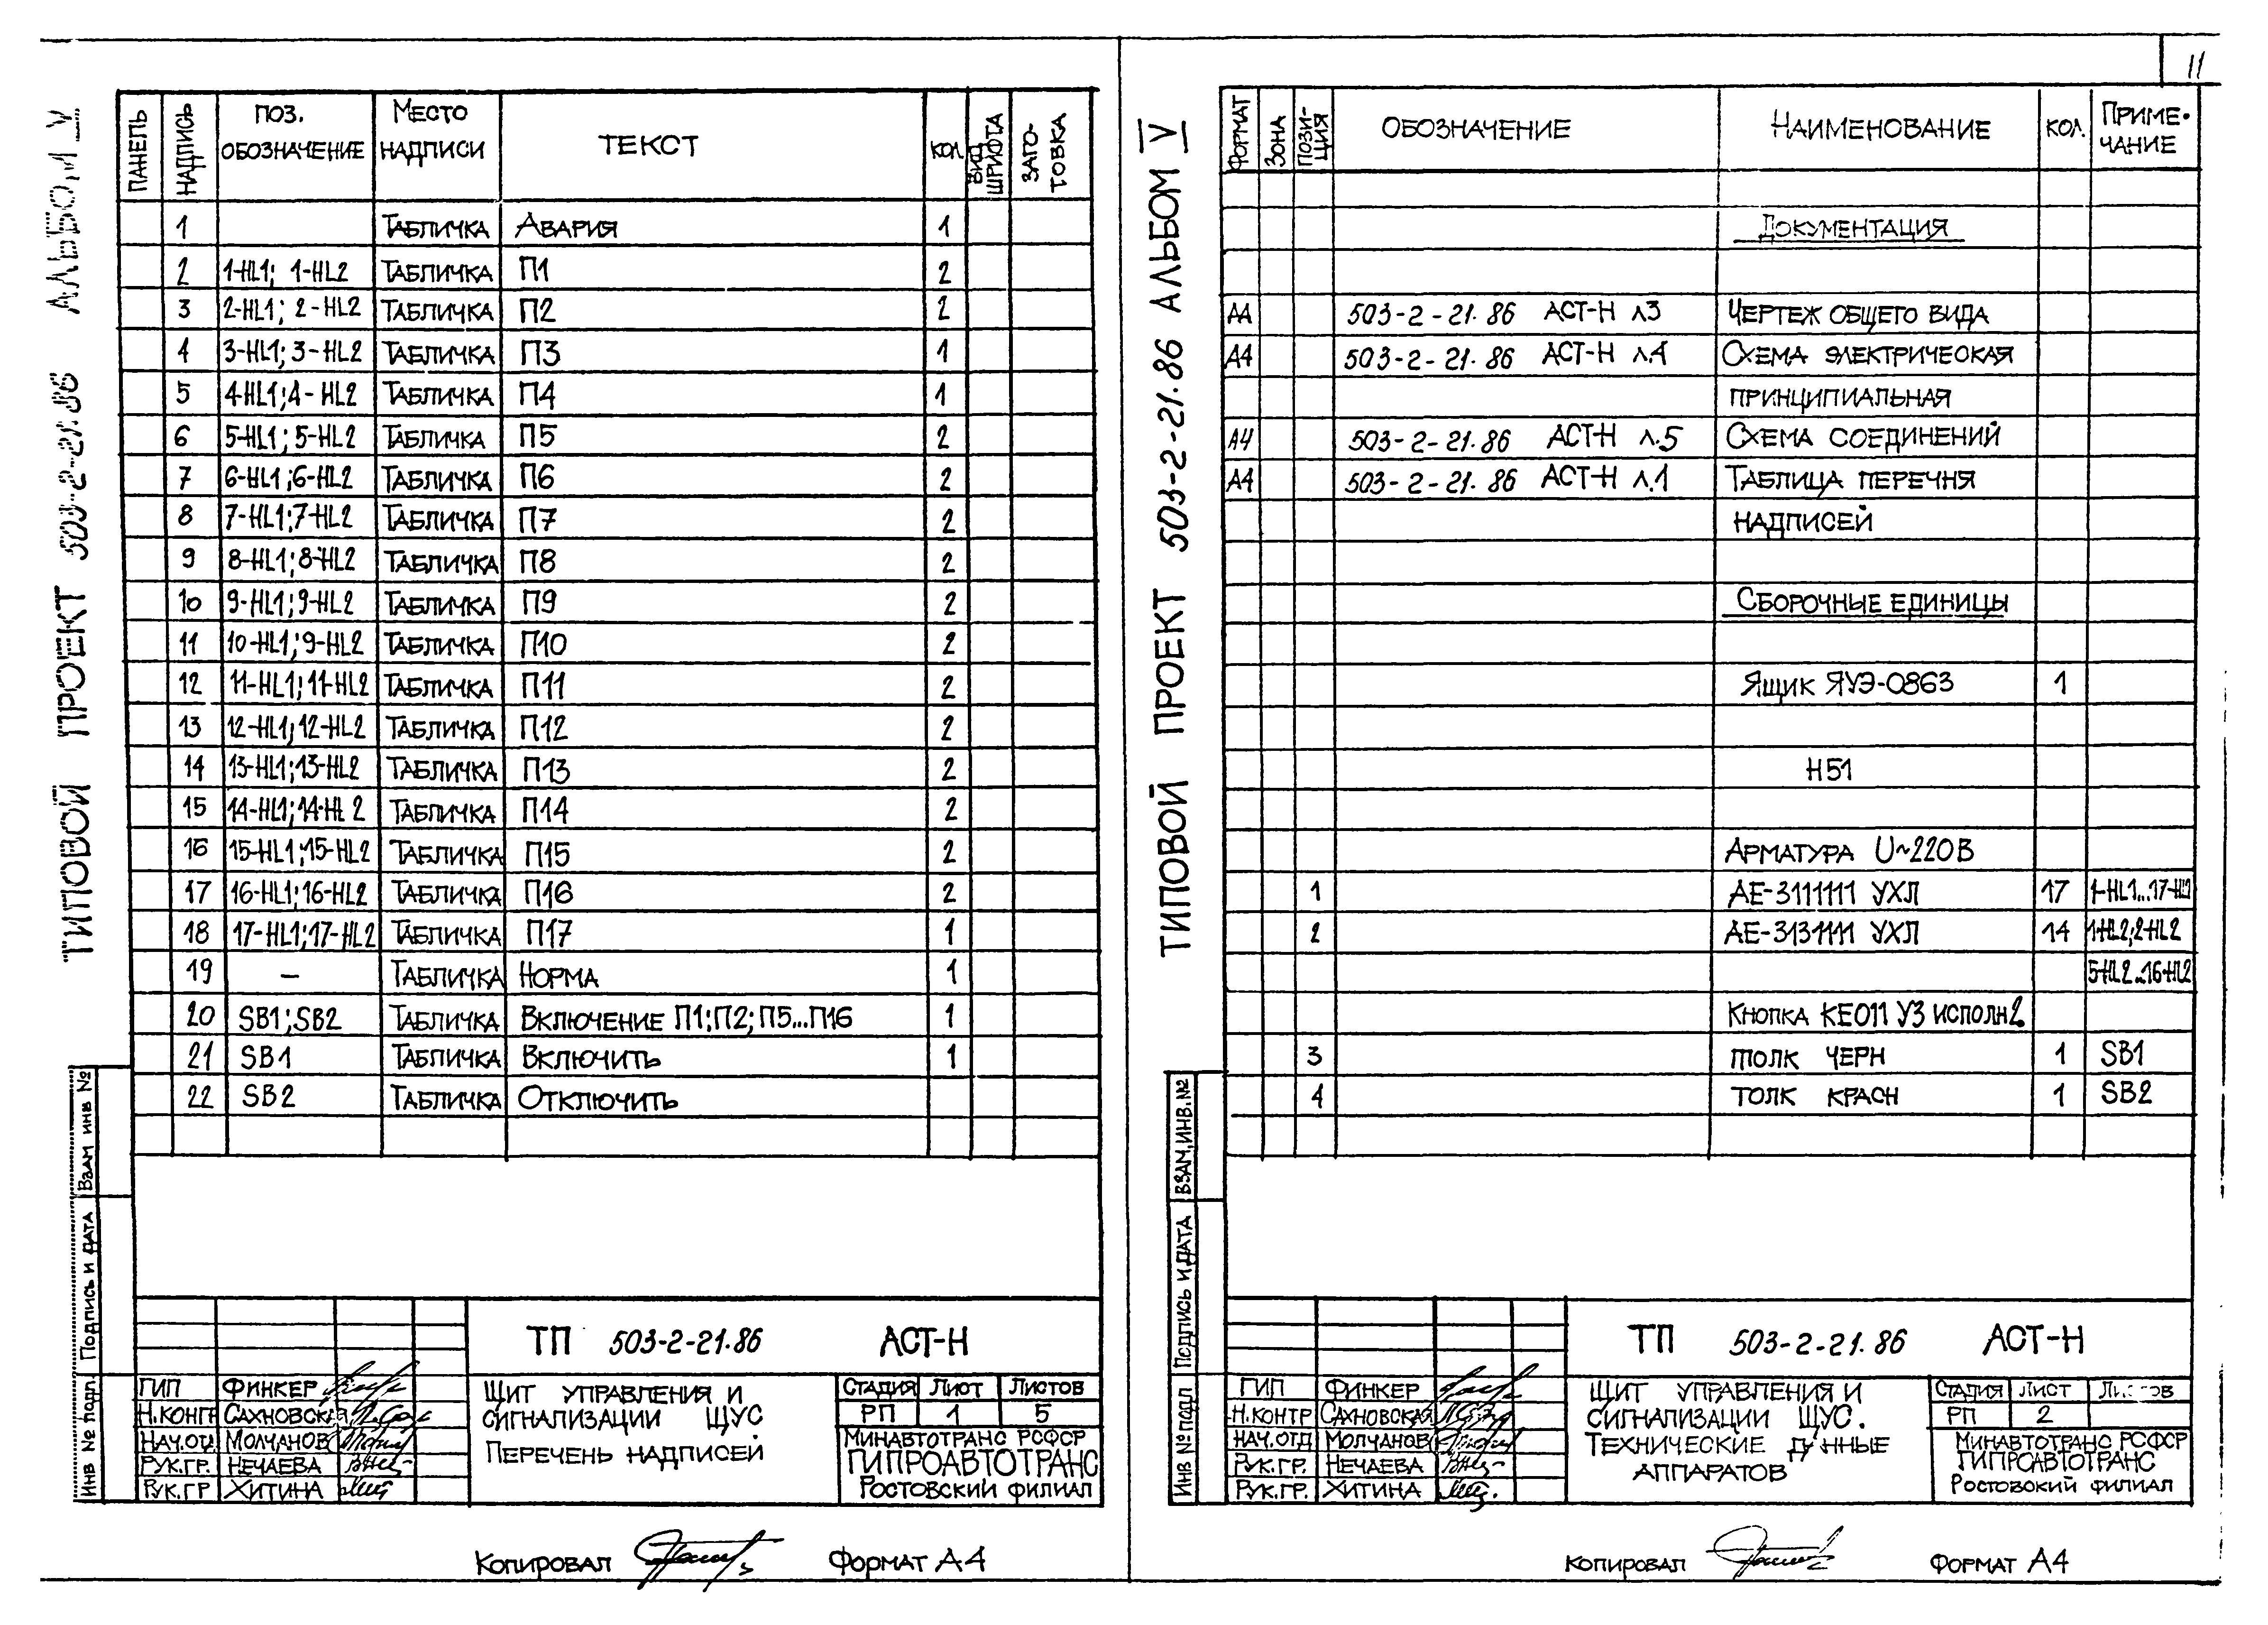 11
ТИПОВОЙ ПРОЕКТ 503-2-21.86 АЛЬБОМ V
ПАНЕЛЬ НАДПИСЬ ПОЗ. ОБОЗНАЧЕНИЕ МЕСТО НАДПИСИ ТЕКСТ КОЛ. ВИД ШРИФТА ЗАГО-ТОВКА
1 ТАБЛИЧКА АВАРИЯ 1
2 1-HL1; 1-HL2 ТАБЛИЧКА П1 2
3 2-HL1; 2-HL2 ТАБЛИЧКА П2 2
4 3-HL1; 3-HL2 ТАБЛИЧКА П3 1
5 4HL1; 4-HL2 ТАБЛИЧКА П4 1
6 5-HL1; 5-HL2 ТАБЛИЧКА П5 2
7 6-HL1; 6-HL2 ТАБЛИЧКА П6 2
8 7-HL1; 7-HL2 ТАБЛИЧКА П7 2
9 8-HL1; 8-HL2 ТАБЛИЧКА П8 2
10 9-HL1; 9-HL2 ТАБЛИЧКА П9 2
11 10-HL1; 9-HL2 ТАБЛИЧКА П10 2
12 11-HL1; 11-HL2 ТАБЛИЧКА П11 2
13 12-HL1; 12-HL2 ТАБЛИЧКА П12 2
14 13-HL1; 13-HL2 ТАБЛИЧКА П13 2
15 14-HL1; 14-HL2 ТАБЛИЧКА П14 2
16 15-HL1; 15-HL2 ТАБЛИЧКА П15 2
17 16-HL1; 16-HL2 ТАБЛИЧКА П16 2
18 17-HL1; 17-HL2 ТАБЛИЧКА П17 1
19 – ТАБЛИЧКА НОРМА 1
20 SB1; SB2 ТАБЛИЧКА ВКЛЮЧЕНИЕ П1; П2; П5...П16 1
21 SB1 ТАБЛИЧКА ВКЛЮЧИТЬ 1
22 SB2 ТАБЛИЧКА ОТКЛЮЧИТЬ
ИНВ № ПОДЛ. ПОДПИСЬ И ДАТА ВЗАМ ИНВ №
ТП 503-2-21.86 АСТ-Н
ГИП ФИНКЕР
Н.КОНТР САХНОВСКАЯ
НАЧ.ОТД МОЛЧАНОВ
РУК.ГР. НЕЧАЕВА
РУК.ГР ХИТИНА
ЩИТ УПРАВЛЕНИЯ И
СИГНАЛИЗАЦИИ ЩУС
ПЕРЕЧЕНЬ НАДПИСЕЙ
СТАДИЯ ЛИСТ ЛИСТОВ
РП 1 5
МИНАВТОТРАНС РСФСР
ГИПРОАВТОТРАНС
РОСТОВСКИЙ ФИЛИАЛ
КОПИРОВАЛ ФОРМАТ А4
ТИПОВОЙ ПРОЕКТ 503-2-21.86 АЛЬБОМ V
ФОРМАТ ЗОНА ПОЗИ-ЦИЯ ОБОЗНАЧЕНИЕ НАИМЕНОВАНИЕ КОЛ. ПРИМЕ-ЧАНИЕ
ДОКУМЕНТАЦИЯ
А4 503-2-21.86 АСТ-Н л3 ЧЕРТЕЖ ОБЩЕГО ВИДА
А4 503-2-21.86 АСТ-Н л.4 СХЕМА ЭЛЕКТРИЧЕСКАЯ
ПРИНЦИПИАЛЬНАЯ
А4 503-2-21.86 АСТ-Н л.5 СХЕМА СОЕДИНЕНИЙ
А4 503-2-21.86 АСТ-Н л.1 ТАБЛИЦА ПЕРЕЧНЯ
НАДПИСЕЙ
СБОРОЧНЫЕ ЕДИНИЦЫ
ЯЩИК ЯУЭ-0863 1
Н51
АРМАТУРА U~220В
1 АЕ-3111111 УХЛ 17 1-HL1...17-HL1
2 АЕ-3131111 УХЛ 14 1-HL2; 2-HL2
5-HL2...16-HL2
КНОПКА КЕ011 У3 ИСПОЛН2
3 ТОЛК ЧЕРН 1 SB1
4 ТОЛК КРАСН 1 SB2
ИНВ № ПОДЛ ПОДПИСЬ И ДАТА ВЗАМ.ИНВ.№
ТП 503-2-21.86 АСТ-Н
ГИП ФИНКЕР
Н.КОНТР САХНОВСКАЯ
НАЧ.ОТД МОЛЧАНОВ
РУК.ГР. НЕЧАЕВА
РУК.ГР. ХИТИНА
ЩИТ УПРАВЛЕНИЯ И
СИГНАЛИЗАЦИИ ЩУС.
ТЕХНИЧЕСКИЕ ДАННЫЕ
АППАРАТОВ
СТАДИЯ ЛИСТ ЛИСТОВ
РП 2
МИНАВТОТРАНС РСФСР
ГИПРОАВТОТРАНС
РОСТОВСКИЙ ФИЛИАЛ
КОПИРОВАЛ ФОРМАТ А4